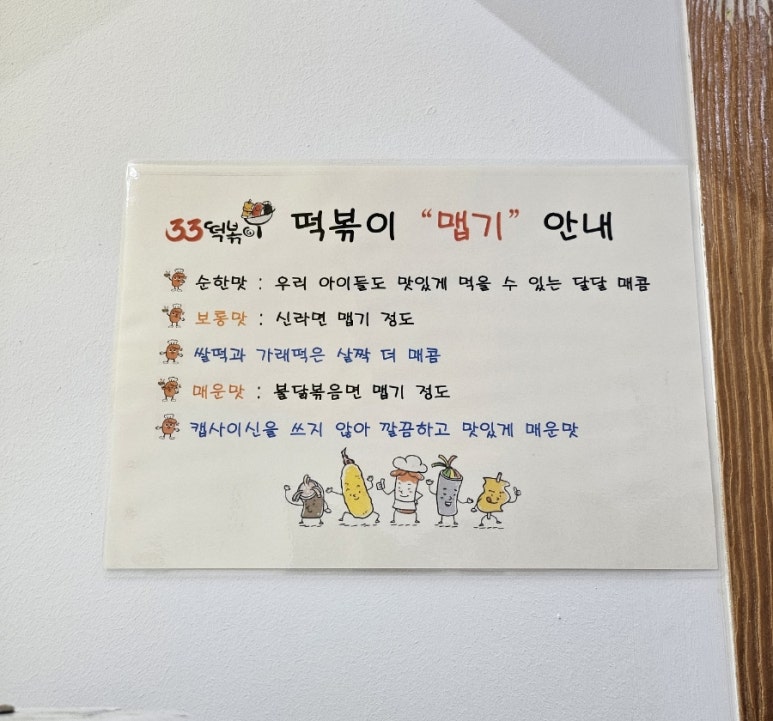 33떡볶이 떡볶이 “맵기” 안내
순한맛 : 우리 아이들도 맛있게 먹을 수 있는 달달 매콤
보통맛 : 신라면 맵기 정도
쌀떡과 가래떡은 살짝 더 매콤
매운맛 : 불닭볶음면 맵기 정도
캡사이신을 쓰지 않아 깔끔하고 맛있게 매운맛